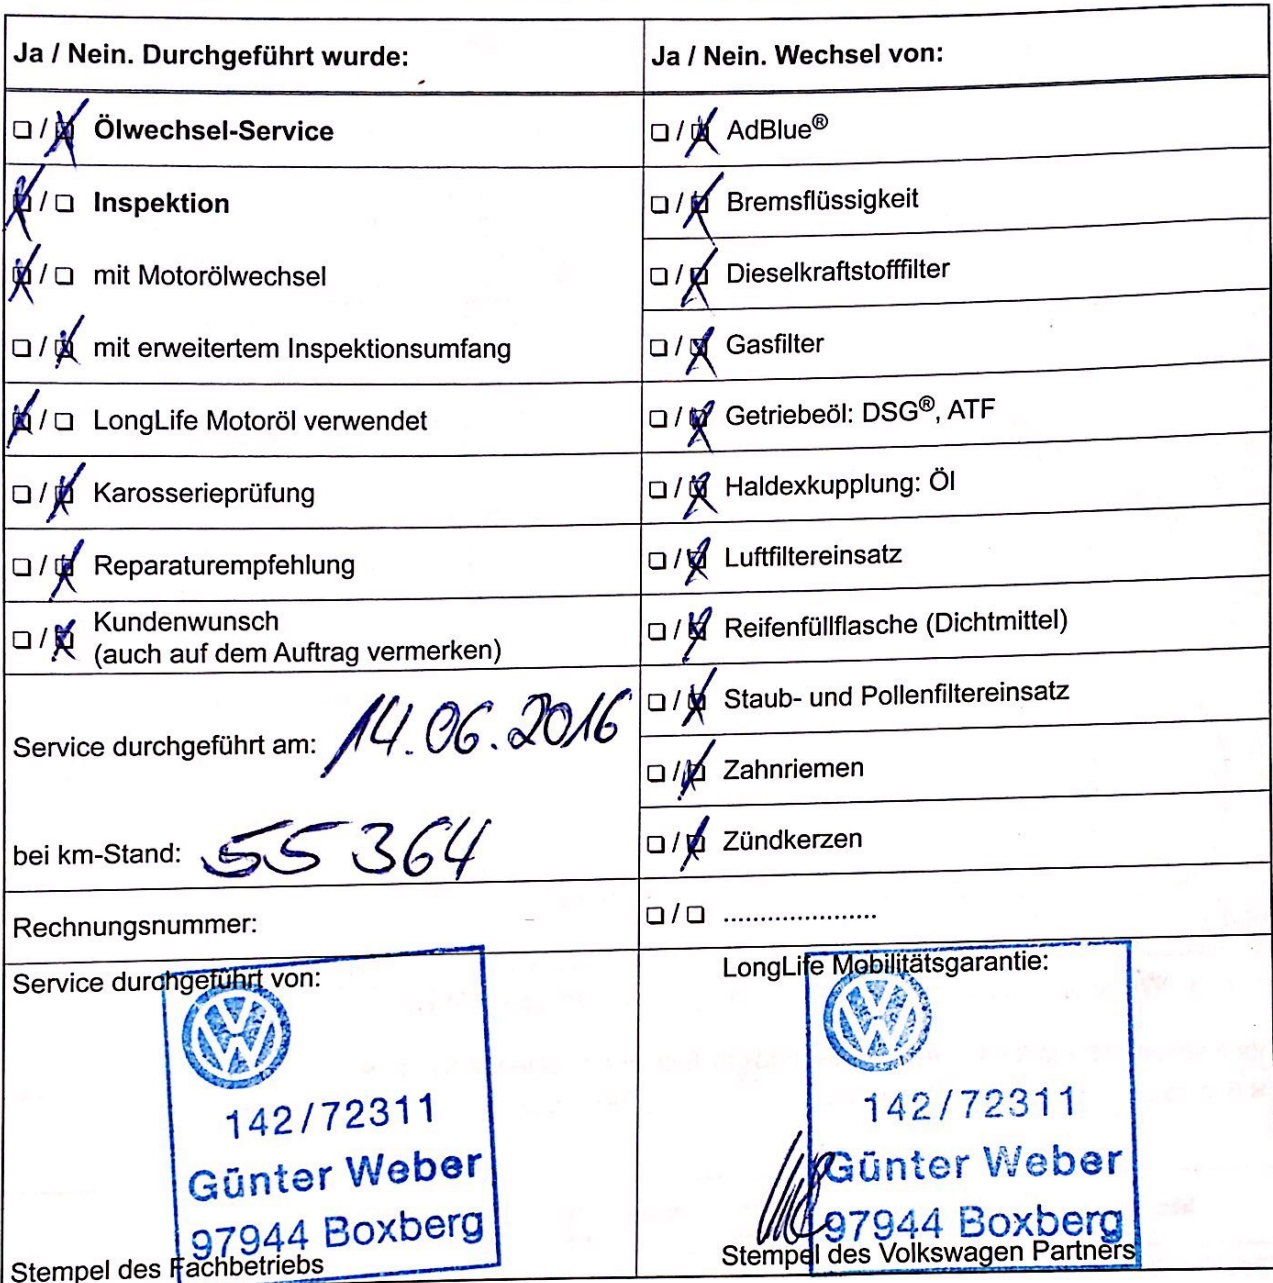 Ja / Nein. Durchgeführt wurde:
☐ / ☒ Ölwechsel-Service
☒ / ☐ Inspektion
☒ / ☐ mit Motorölwechsel
☐ / ☒ mit erweitertem Inspektionsumfang
☒ / ☐ LongLife Motoröl verwendet
☐ / ☒ Karosserieprüfung
☐ / ☒ Reparaturempfehlung
☐ / ☒ Kundenwunsch
(auch auf dem Auftrag vermerken)
Service durchgeführt am: 14.06.2016
bei km-Stand: 55 364
Rechnungsnummer:
Service durchgeführt von:
142/72311
Günter Weber
97944 Boxberg
Stempel des Fachbetriebs
Ja / Nein. Wechsel von:
☐ / ☒ AdBlue®
☐ / ☒ Bremsflüssigkeit
☐ / ☒ Dieselkraftstofffilter
☐ / ☒ Gasfilter
☐ / ☒ Getriebeöl: DSG®, ATF
☐ / ☒ Haldexkupplung: Öl
☐ / ☒ Luftfiltereinsatz
☐ / ☒ Reifenfüllflasche (Dichtmittel)
☐ / ☒ Staub- und Pollenfiltereinsatz
☐ / ☒ Zahnriemen
☐ / ☒ Zündkerzen
☐ / ☐ .....................
LongLife Mobilitätsgarantie:
142/72311
Günter Weber
97944 Boxberg
Stempel des Volkswagen Partners